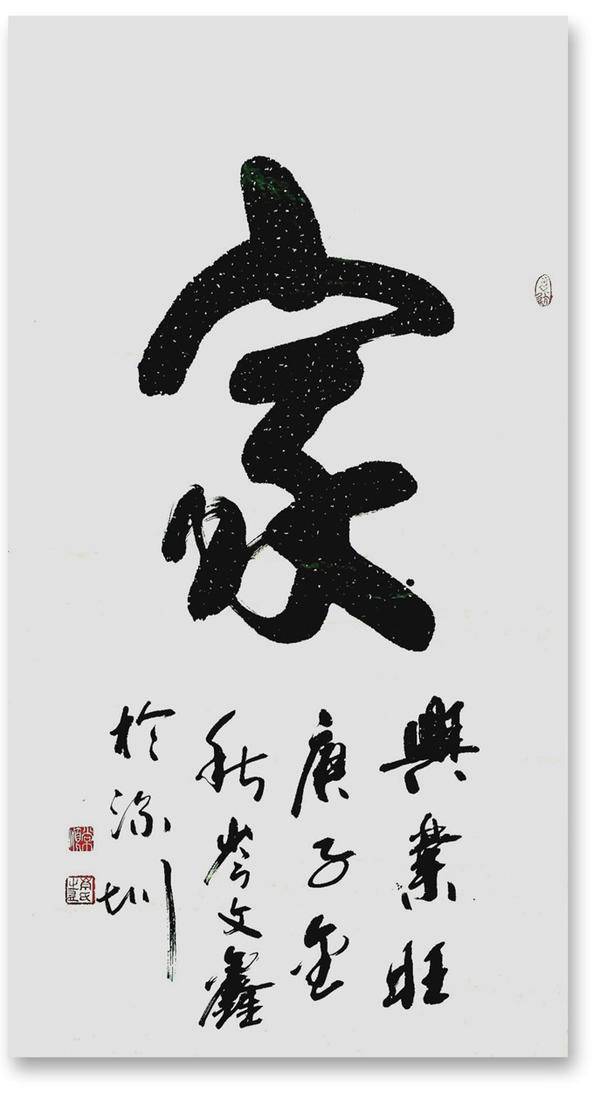 家
興業旺
庚子金
秋岑文鑫
於深圳